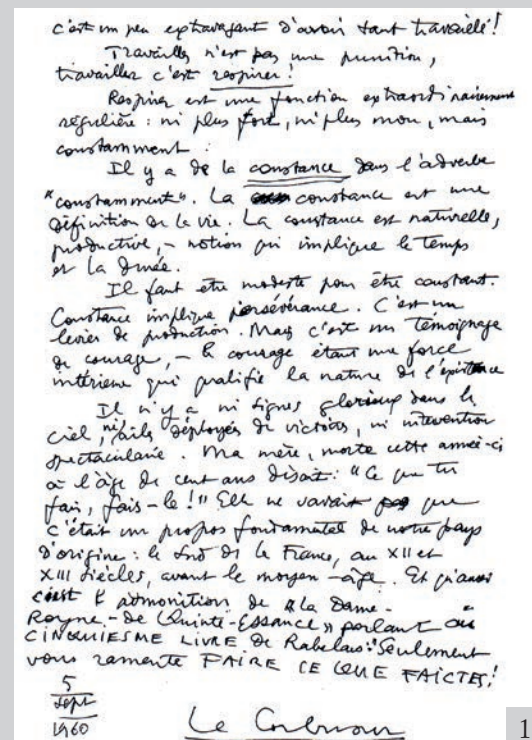 c'est un peu extravagant d'avoir tant travaillé!
Travailler n'est pas une punition,
travailler c'est respirer!
Respirer est une fonction extraordinairement
régulière: ni plus fort, ni plus mou, mais
constamment.
Il y a de la constance dans l'adverbe
"constamment". La constance est une
définition de la vie. La constance est naturelle,
productive, – notion qui implique le temps
et la durée.
Il faut être modeste pour être constant.
Constance implique persévérance. C'est un
levier de production. Mais c'est un témoignage
de courage, – le courage étant une force
intérieure qui qualifie la nature de l'existence
Il n'y a ni signes glorieux dans le
ciel, ni voiles déployés de victoires, ni intervention
spectaculaire. Ma mère, morte cette année-ci
à l'âge de cent ans disait: "Ce que tu
fais, fais-le!" Elle ne savait pas que
c'était un propos fondamental de notre pays
d'origine: le Sud de la France, au XII et
XIII siècles, avant le moyen-âge. Et qu'aussi
c'est l'admonition de «la Dame-
Royne-de Quinte-Essance» parlant au
CINQUIESME LIVRE de Rabelais: "Seulement
vous ramente FAIRE CE QUE FAICTES!
5
sept
1960
Le Corbusier
1